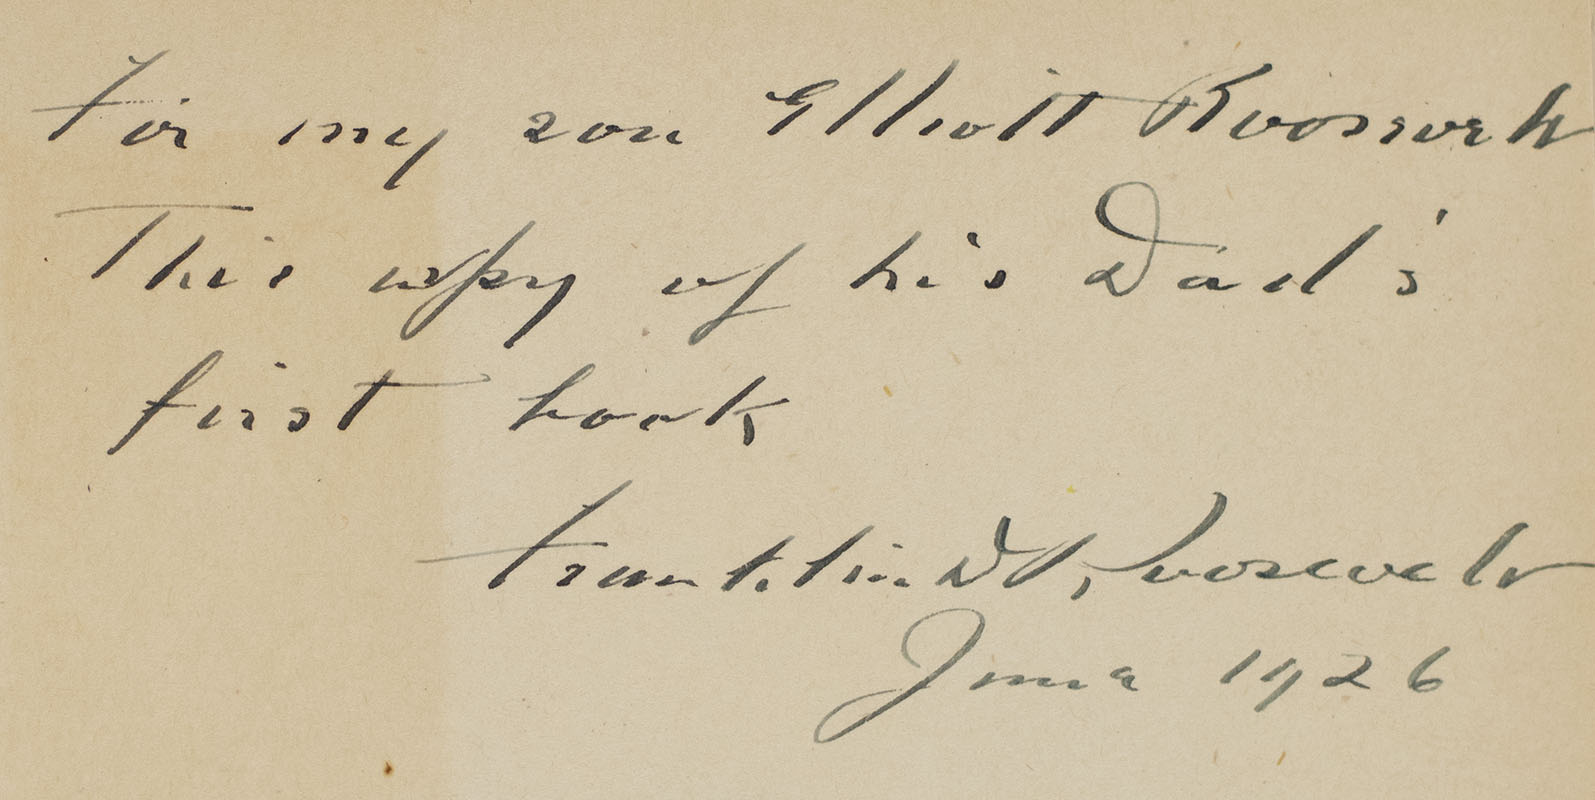 For my son Elliott Roosevelt
This copy of his Dad's
first book
Franklin D Roosevelt
June 1926